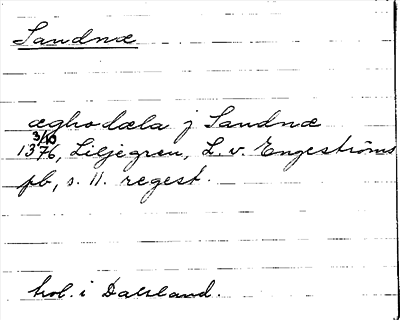 Sandnæ
ægho dæla j Sandnæ
3/10
1376, Liljegren, L. v. Engeströms
pb, s. 11. regest.
trol. i Dalsland.